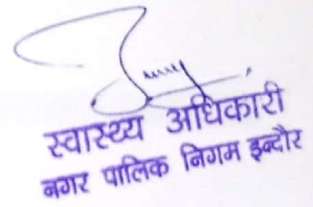 स्वास्थ्य अधिकारी
नगर पालिक निगम इन्दौर